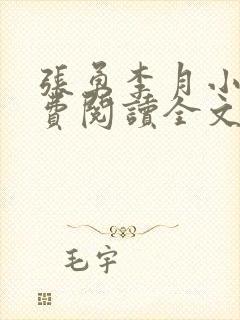 張勇李月小
費閱讀全文
毛宇